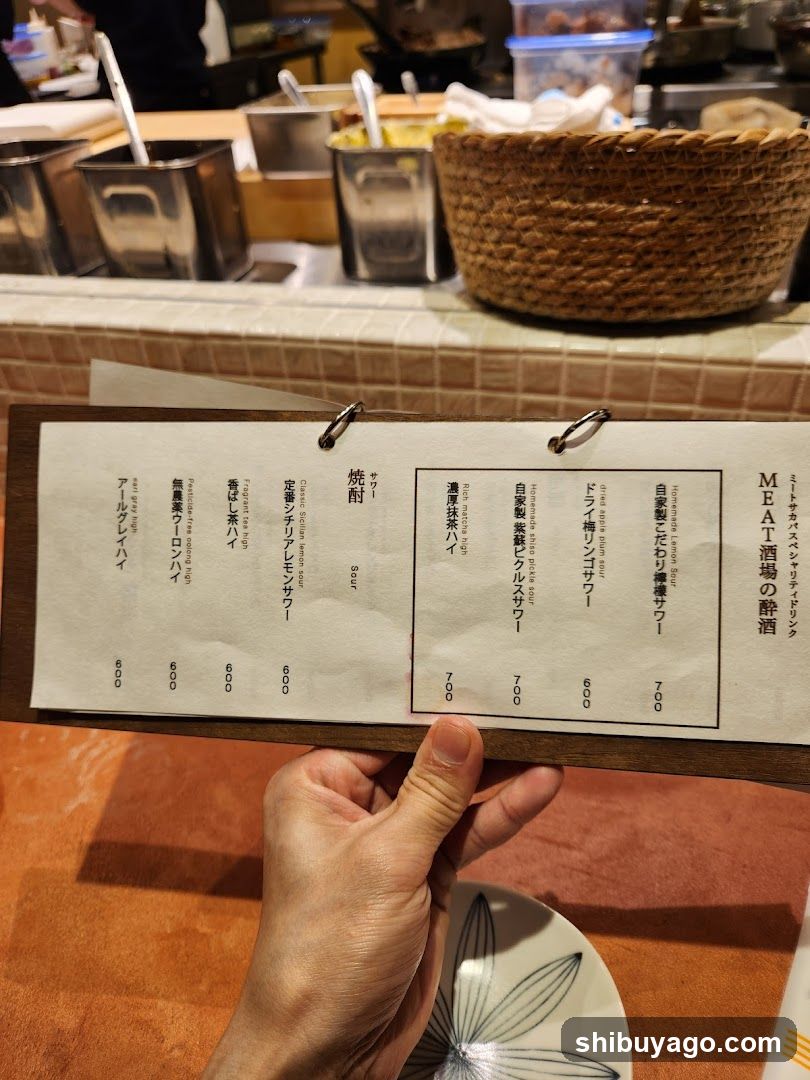 ミートサカバスペシャリティドリンク
MEAT酒場の酔酒
Homemade Lemon Sour
自家製こだわり檸檬サワー
700
dried apple plum sour
ドライ梅リンゴサワー
600
Homemade shiso pickle sour
自家製 紫蘇ピクルスサワー
700
Rich matcha high
濃厚抹茶ハイ
700
サワー
焼酎
Sour
Classic Sicilian lemon sour
定番シチリアレモンサワー
600
Fragrant tea high
香ばし茶ハイ
600
Pesticide-free oolong high
無農薬ウーロンハイ
600
earl gray high
アールグレイハイ
600
shibuyago.com